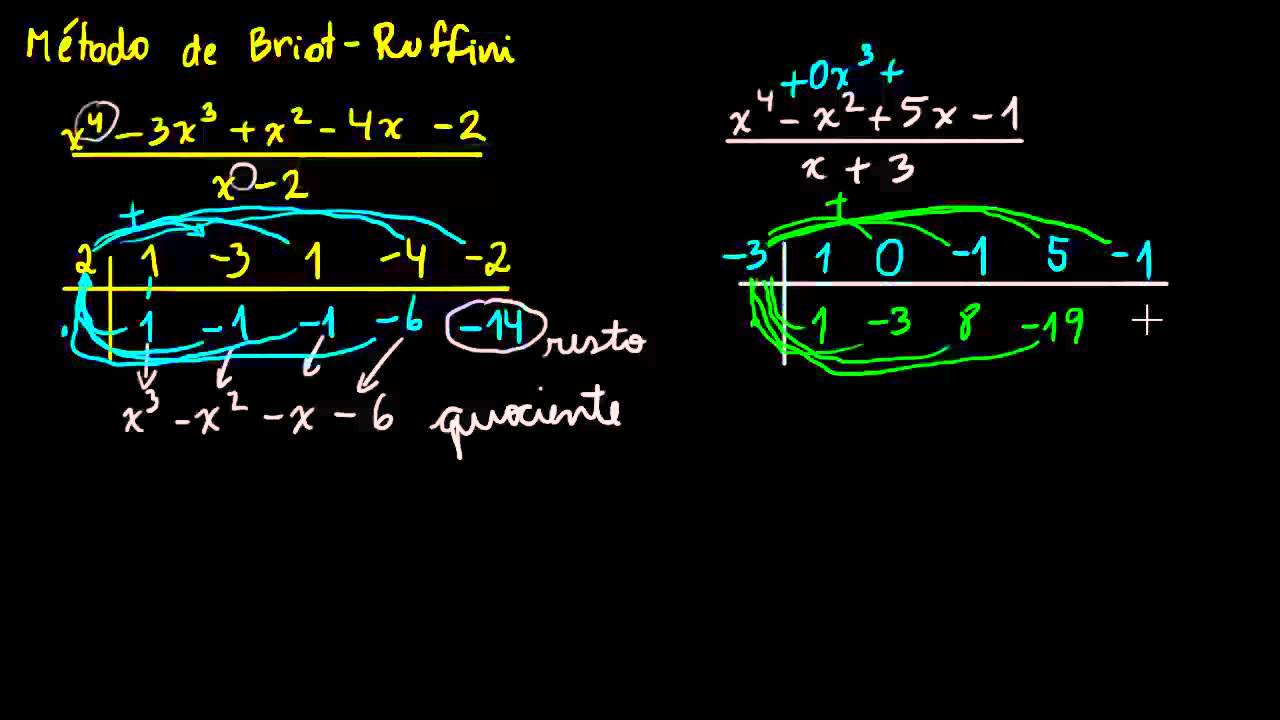 Método de Briot-Ruffini
x⁴ - 3x³ + x² - 4x - 2
x - 2
+
2 1 -3 1 -4 -2
. 1 -1 -1 -6 -14 resto
x³ - x² - x - 6 quociente
+0x³ +
x⁴ - x² + 5x - 1
x + 3
+
-3 1 0 -1 5 -1
1 -3 8 -19